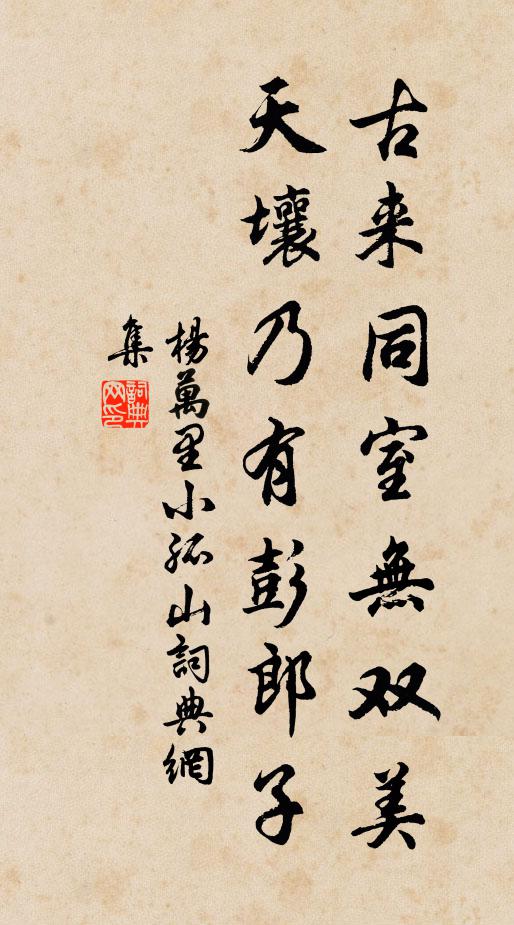 古来同室無双美
天壤乃有彭郎子
楊萬里小孤山詞典網
集
詞典
网印